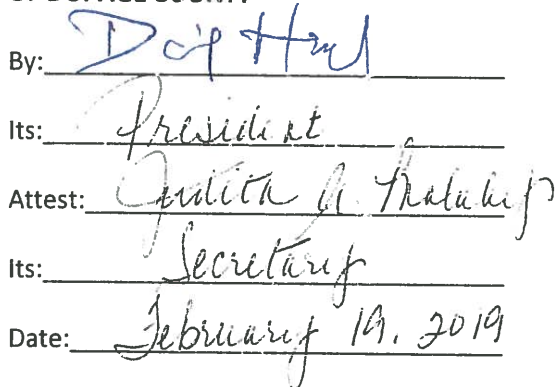 By:
Its: President
Attest: Judith A.
Its: Secretary
Date: February 19, 2019